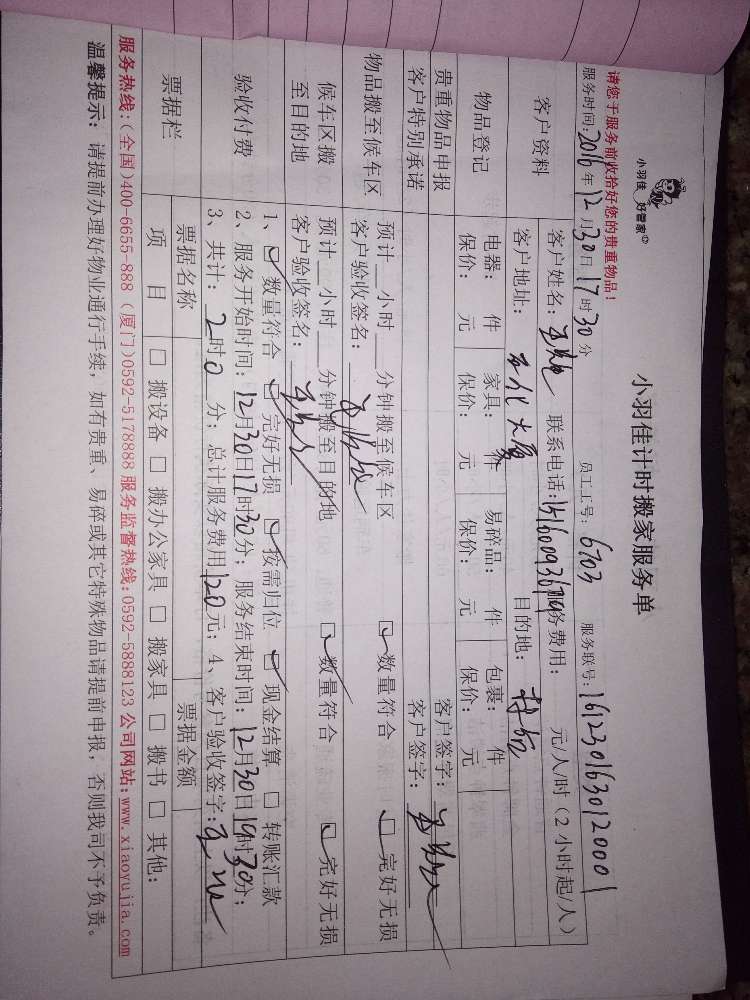 小羽佳 好管家
小羽佳计时搬家服务单
请您于服务前收拾好您的贵重物品！
服务时间：2016年12月30日17时30分 员工工号：6703 服务联号：1612301630120001
客户资料
客户姓名： 联系电话： 服务费用： 元/人/时（2小时起/人）
客户地址： 大厦 目的地：
物品登记
电器： 件 家具： 件 易碎品： 件 包裹： 件
保价： 元 保价： 元 保价： 元 保价： 元
贵重物品申报 客户签字：
客户特别承诺 客户签字：
物品搬至候车区
预计__小时__分钟搬至候车区 ☑数量符合 ☑完好无损
客户验收签名：
候车区搬至目的地
预计__小时__分钟搬至目的地 ☑数量符合 ☑完好无损
客户验收签名：
验收付费
1、☑数量符合 ☑完好无损 ☑按需归位 ☑现金结算 □转账汇款
2、服务开始时间：12月30日17时30分；服务结束时间：12月30日19时30分；
3、共计：2时0分；总计服务费用120元；4、客户验收签字：
票据栏
票据名称 票据金额
项目 □搬设备 □搬办公家具 □搬家具 □搬书 □其他：
服务热线：（全国）400-6655-888（厦门）0592-5178888 服务监督热线：0592-5888123 公司网站：www.xiaoyujia.com
温馨提示：请提前办理好物业通行手续，如有贵重、易碎或其它特殊物品请提前申报，否则我司不予负责。